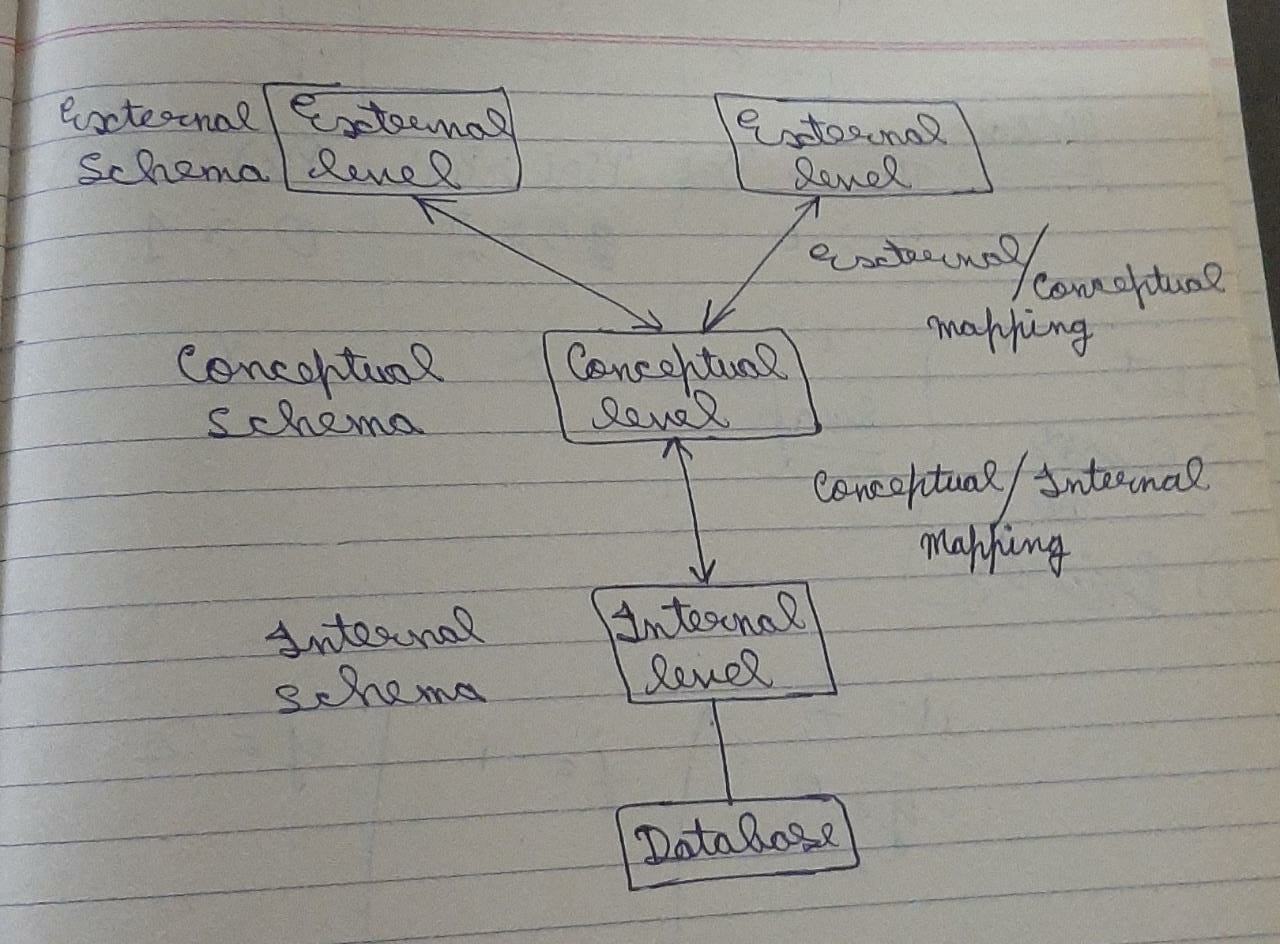 External
Schema
External
level
External
level
External/
Conceptual
mapping
Conceptual
Schema
Conceptual
level
Conceptual/Internal
Mapping
Internal
Schema
Internal
level
Database